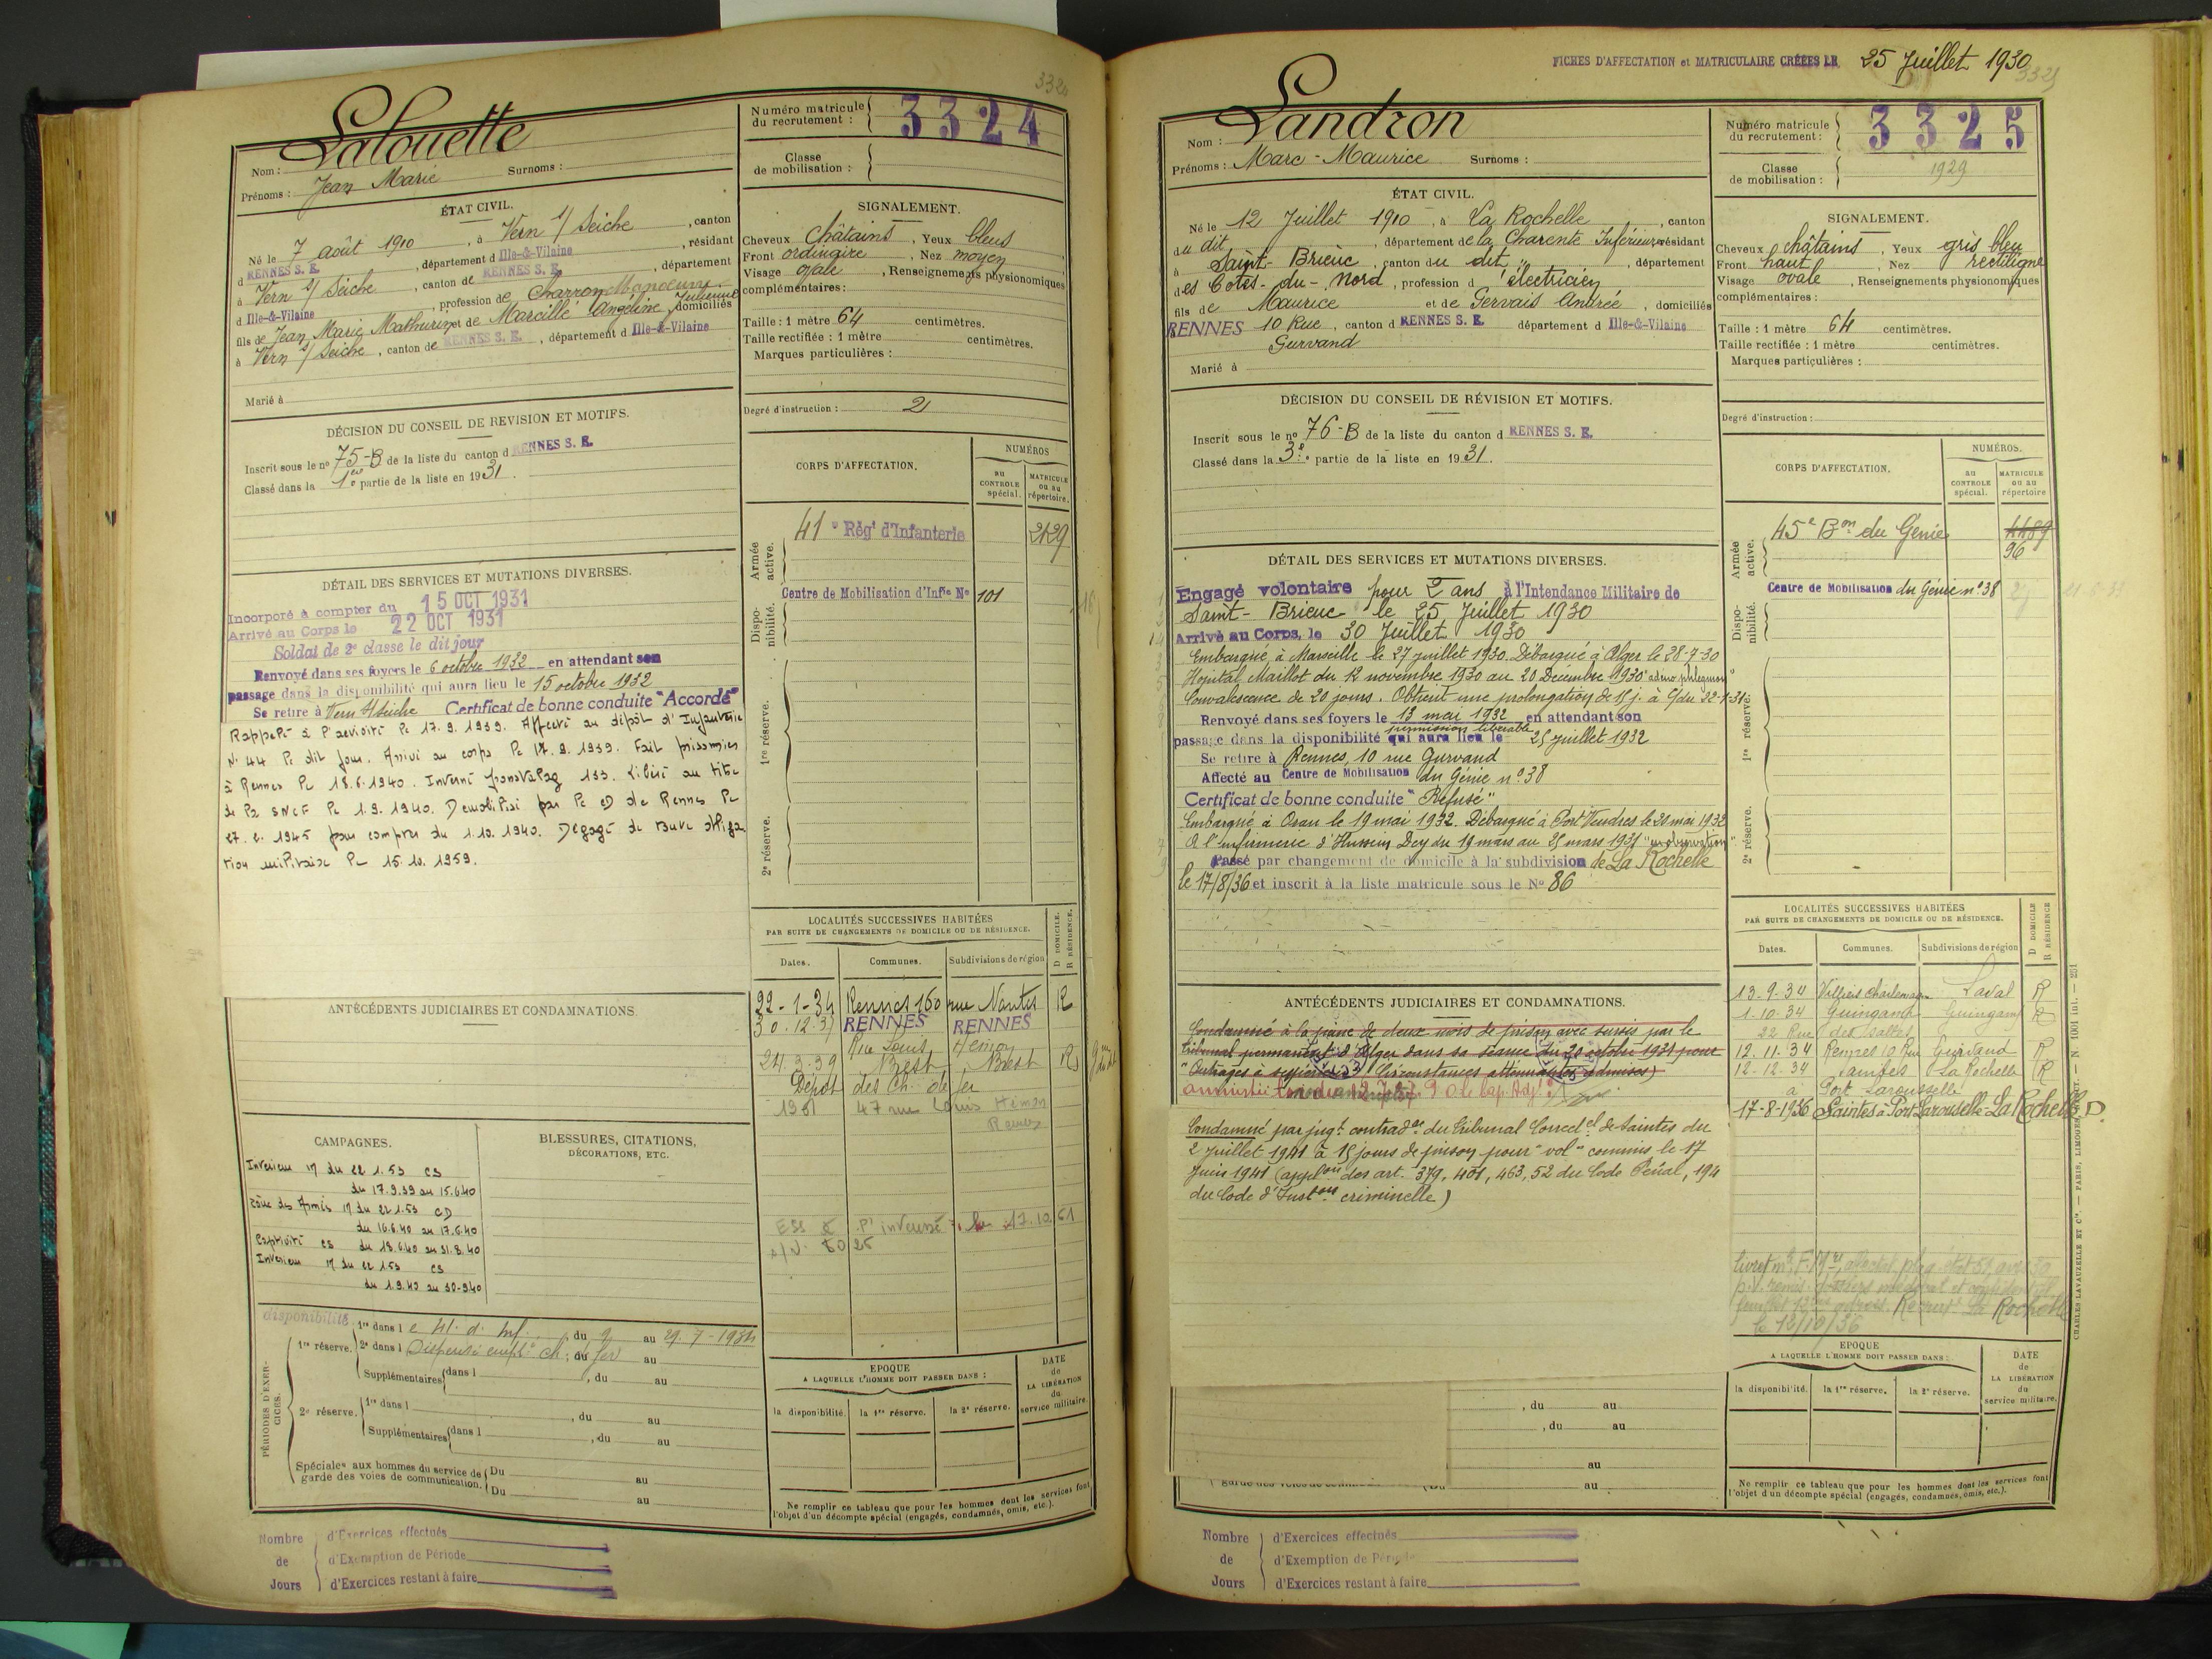 3324
Lalouette
Nom :
Prénoms : Jean Marie Surnoms :
Numéro matricule du recrutement : 3324
Classe de mobilisation :
ÉTAT CIVIL.
Né le 7 août 1910, à Vern s/ Seiche, canton
d RENNES S. E., département d Ille-&-Vilaine, résidant
à Vern s/ Seiche, canton de RENNES S. E., département
d Ille-&-Vilaine, profession de Charron Manoeuvre
fils de Jean Marie Mathurin et de Marcillé Angéline Julienne domiciliés
à Vern s/ Seiche, canton de RENNES S. E., département d Ille-&-Vilaine
Marié à
SIGNALEMENT.
Cheveux châtains, Yeux bleus
Front ordinaire, Nez moyen
Visage ovale, Renseignements physionomiques
complémentaires :
Taille : 1 mètre 64 centimètres.
Taille rectifiée : 1 mètre centimètres.
Marques particulières :
Degré d'instruction : 2
DÉCISION DU CONSEIL DE REVISION ET MOTIFS.
Inscrit sous le no 75-B de la liste du canton d RENNES S. E.
Classé dans la 1ere partie de la liste en 1931.
CORPS D'AFFECTATION.
NUMÉROS
au CONTROLE spécial.
MATRICULE ou au répertoire.
Armée active.
41e Régt d'Infanterie 2129
Dispo-nibilité.
Centre de Mobilisation d'Infie No 101
1re réserve.
2e réserve.
DÉTAIL DES SERVICES ET MUTATIONS DIVERSES.
Incorporé à compter du 15 OCT 1931
Arrivé au Corps le 22 OCT 1931
Soldat de 2e classe le dit jour
Renvoyé dans ses foyers le 6 octobre 1932 en attendant son
passage dans la disponibilité qui aura lieu le 15 octobre 1932
Se retire à Vern s/ Seiche Certificat de bonne conduite "Accordé"
Rappelé à l'activité le 17.9.1939. Affecté au dépôt d'Infanterie
N° 44 le dit jour. Arrivé au corps le 17.9.1939. Fait prisonnier
à Rennes le 18.6.1940. Interné 133. Libéré au titre
de la SNCF le 1.9.1940. Démobilisé par le CD de Rennes le
27.2.1945 pour compter du 1.10.1940. Dégagé de toute obliga
tion militaire le 15.10.1959.
ANTÉCÉDENTS JUDICIAIRES ET CONDAMNATIONS.
LOCALITÉS SUCCESSIVES HABITÉES
PAR SUITE DE CHANGEMENTS DE DOMICILE OU DE RÉSIDENCE.
Dates. Communes. Subdivisions de région D DOMICILE. R RÉSIDENCE.
22-1-34 Rennes 160 rue Nantes R
30.12.37 RENNES RENNES
Rue Louis Hémon
24.3.39 Brest Brest R
Dépôt des Ch. de fer
1951 47 rue Louis Hémon
Rennes
CAMPAGNES.
Intérieur 17 du 22 1.53 CS
du 17.9.39 au 15.6.40
Zône des Armées 17 du 22 1.53 CD
du 16.6.40 au 17.6.40
Captivité CS du 18.6.40 au 31.8.40
Intérieur 17 du 22 1.53 CS
du 1.9.40 au 30-9.40
BLESSURES, CITATIONS,
DÉCORATIONS, ETC.
disponibilité
PÉRIODES D'EXERCICES.
1re réserve. 1re dans l e 41. d. Inf., du 9 au 29-7-1934
2e dans l Dispensé empl. ch. du fer au
Supplémentaires dans l, du au
2e réserve. 1re dans l, du au
Supplémentaires dans l, du au
Spéciales aux hommes du service de garde des voies de communication. Du au
Du au
EPOQUE
A LAQUELLE L'HOMME DOIT PASSER DANS :
la disponibilité. la 1re réserve. la 2e réserve.
DATE de LA LIBÉRATION du service militaire.
Ne remplir ce tableau que pour les hommes dont les services font
l'objet d'un décompte spécial (engagés, condamnés, omis, etc.).
Nombre de Jours
d'Exercices effectués
d'Exemption de Période
d'Exercices restant à faire
FICHES D'AFFECTATION et MATRICULAIRE CRÉÉES LE 25 Juillet 1930
3325
Landron
Nom :
Prénoms : Marc-Maurice Surnoms :
Numéro matricule du recrutement : 3325
Classe de mobilisation : 1929
ÉTAT CIVIL.
Né le 12 Juillet 1910, à La Rochelle, canton
du dit, département de la Charente Inférieure résidant
à Saint-Brieuc, canton du dit, département
des Côtes-du-Nord, profession d'électricien
fils de Maurice et de Gervais Andrée, domiciliés
RENNES 10 Rue, canton d RENNES S. E. département d Ille-&-Vilaine
Gurvand
Marié à
SIGNALEMENT.
Cheveux châtains, Yeux gris bleu
Front haut, Nez rectiligne
Visage ovale, Renseignements physionomiques
complémentaires :
Taille : 1 mètre 64 centimètres.
Taille rectifiée : 1 mètre centimètres.
Marques particulières :
Degré d'instruction :
DÉCISION DU CONSEIL DE RÉVISION ET MOTIFS.
Inscrit sous le no 76-B de la liste du canton d RENNES S. E.
Classé dans la 3e partie de la liste en 1931.
CORPS D'AFFECTATION.
NUMÉROS.
au CONTROLE spécial.
MATRICULE ou au répertoire
Armée active.
45e Bon du Génie 4489
96
Dispo-nibilité.
Centre de Mobilisation du Génie no 38
1re réserve.
2e réserve.
DÉTAIL DES SERVICES ET MUTATIONS DIVERSES.
Engagé volontaire pour 2 ans à l'Intendance Militaire de
Saint-Brieuc le 25 Juillet 1930
Arrivé au Corps, le 30 Juillet 1930
Embarqué à Marseille le 27 juillet 1930. Débarqué à Alger le 28-7-30
Hôpital Maillot du 12 novembre 1930 au 20 Décembre 1930 "adéno phlegmon"
Convalescence de 20 jours. Obtient une prolongation de 15 j. à 22-1-31
Renvoyé dans ses foyers le 13 mai 1932 en attendant son
permission libérable
passage dans la disponibilité qui aura lieu le 25 juillet 1932
Se retire à Rennes, 10 rue Gurvand
Affecté au Centre de Mobilisation du Génie no 38
Certificat de bonne conduite "Refusé"
Embarqué à Oran le 19 mai 1932. Débarqué à Port Vendres le 20 mai 1932
A l'infirmerie d'Hussein Dey du 19 mars au 25 mars 1931 "en observation"
Passé par changement de domicile à la subdivision de La Rochelle
le 17/8/36 et inscrit à la liste matricule sous le No 86
ANTÉCÉDENTS JUDICIAIRES ET CONDAMNATIONS.
Condamné à la peine de deux mois de prison avec sursis par le
tribunal permanent d'Alger dans sa séance du 20 octobre 1931 pour
"Outrages à supérieur" (Circonstances atténuantes admises)
amnistié
Condamné par jugt contradre du Tribunal Correctel de Saintes du
2 Juillet 1941 à 15 jours de prison pour "vol" commis le 17
Juin 1941 (applon des art. 379, 401, 463, 52 du Code Pénal, 194
du Code d'Instons criminelle)
LOCALITÉS SUCCESSIVES HABITÉES
PAR SUITE DE CHANGEMENTS DE DOMICILE OU DE RÉSIDENCE.
Dates. Communes. Subdivisions de région D DOMICILE R RÉSIDENCE
13-9-34 Villiers Charlemagne Laval R
1-10-34 Guingamp Guingamp R
22 Rue des Salles
12.11.34 Rennes 10 Rue Gurvand R
12-12-34 Saintes La Rochelle R
à Port Larousselle
17-8-1936 Saintes à Port Larousselle La Rochelle D
La Rochelle
le 12/10/36
, du au
, du au
au
au
EPOQUE
A LAQUELLE L'HOMME DOIT PASSER DANS :
la disponibilité. la 1re réserve. la 2e réserve.
DATE de LA LIBÉRATION du service militaire.
Ne remplir ce tableau que pour les hommes dont les services font
l'objet d'un décompte spécial (engagés, condamnés, omis, etc.).
Nombre de Jours
d'Exercices effectués
d'Exemption de Période
d'Exercices restant à faire
CHARLES LAVAUZELLE ET Cie. — PARIS, LIMOGES